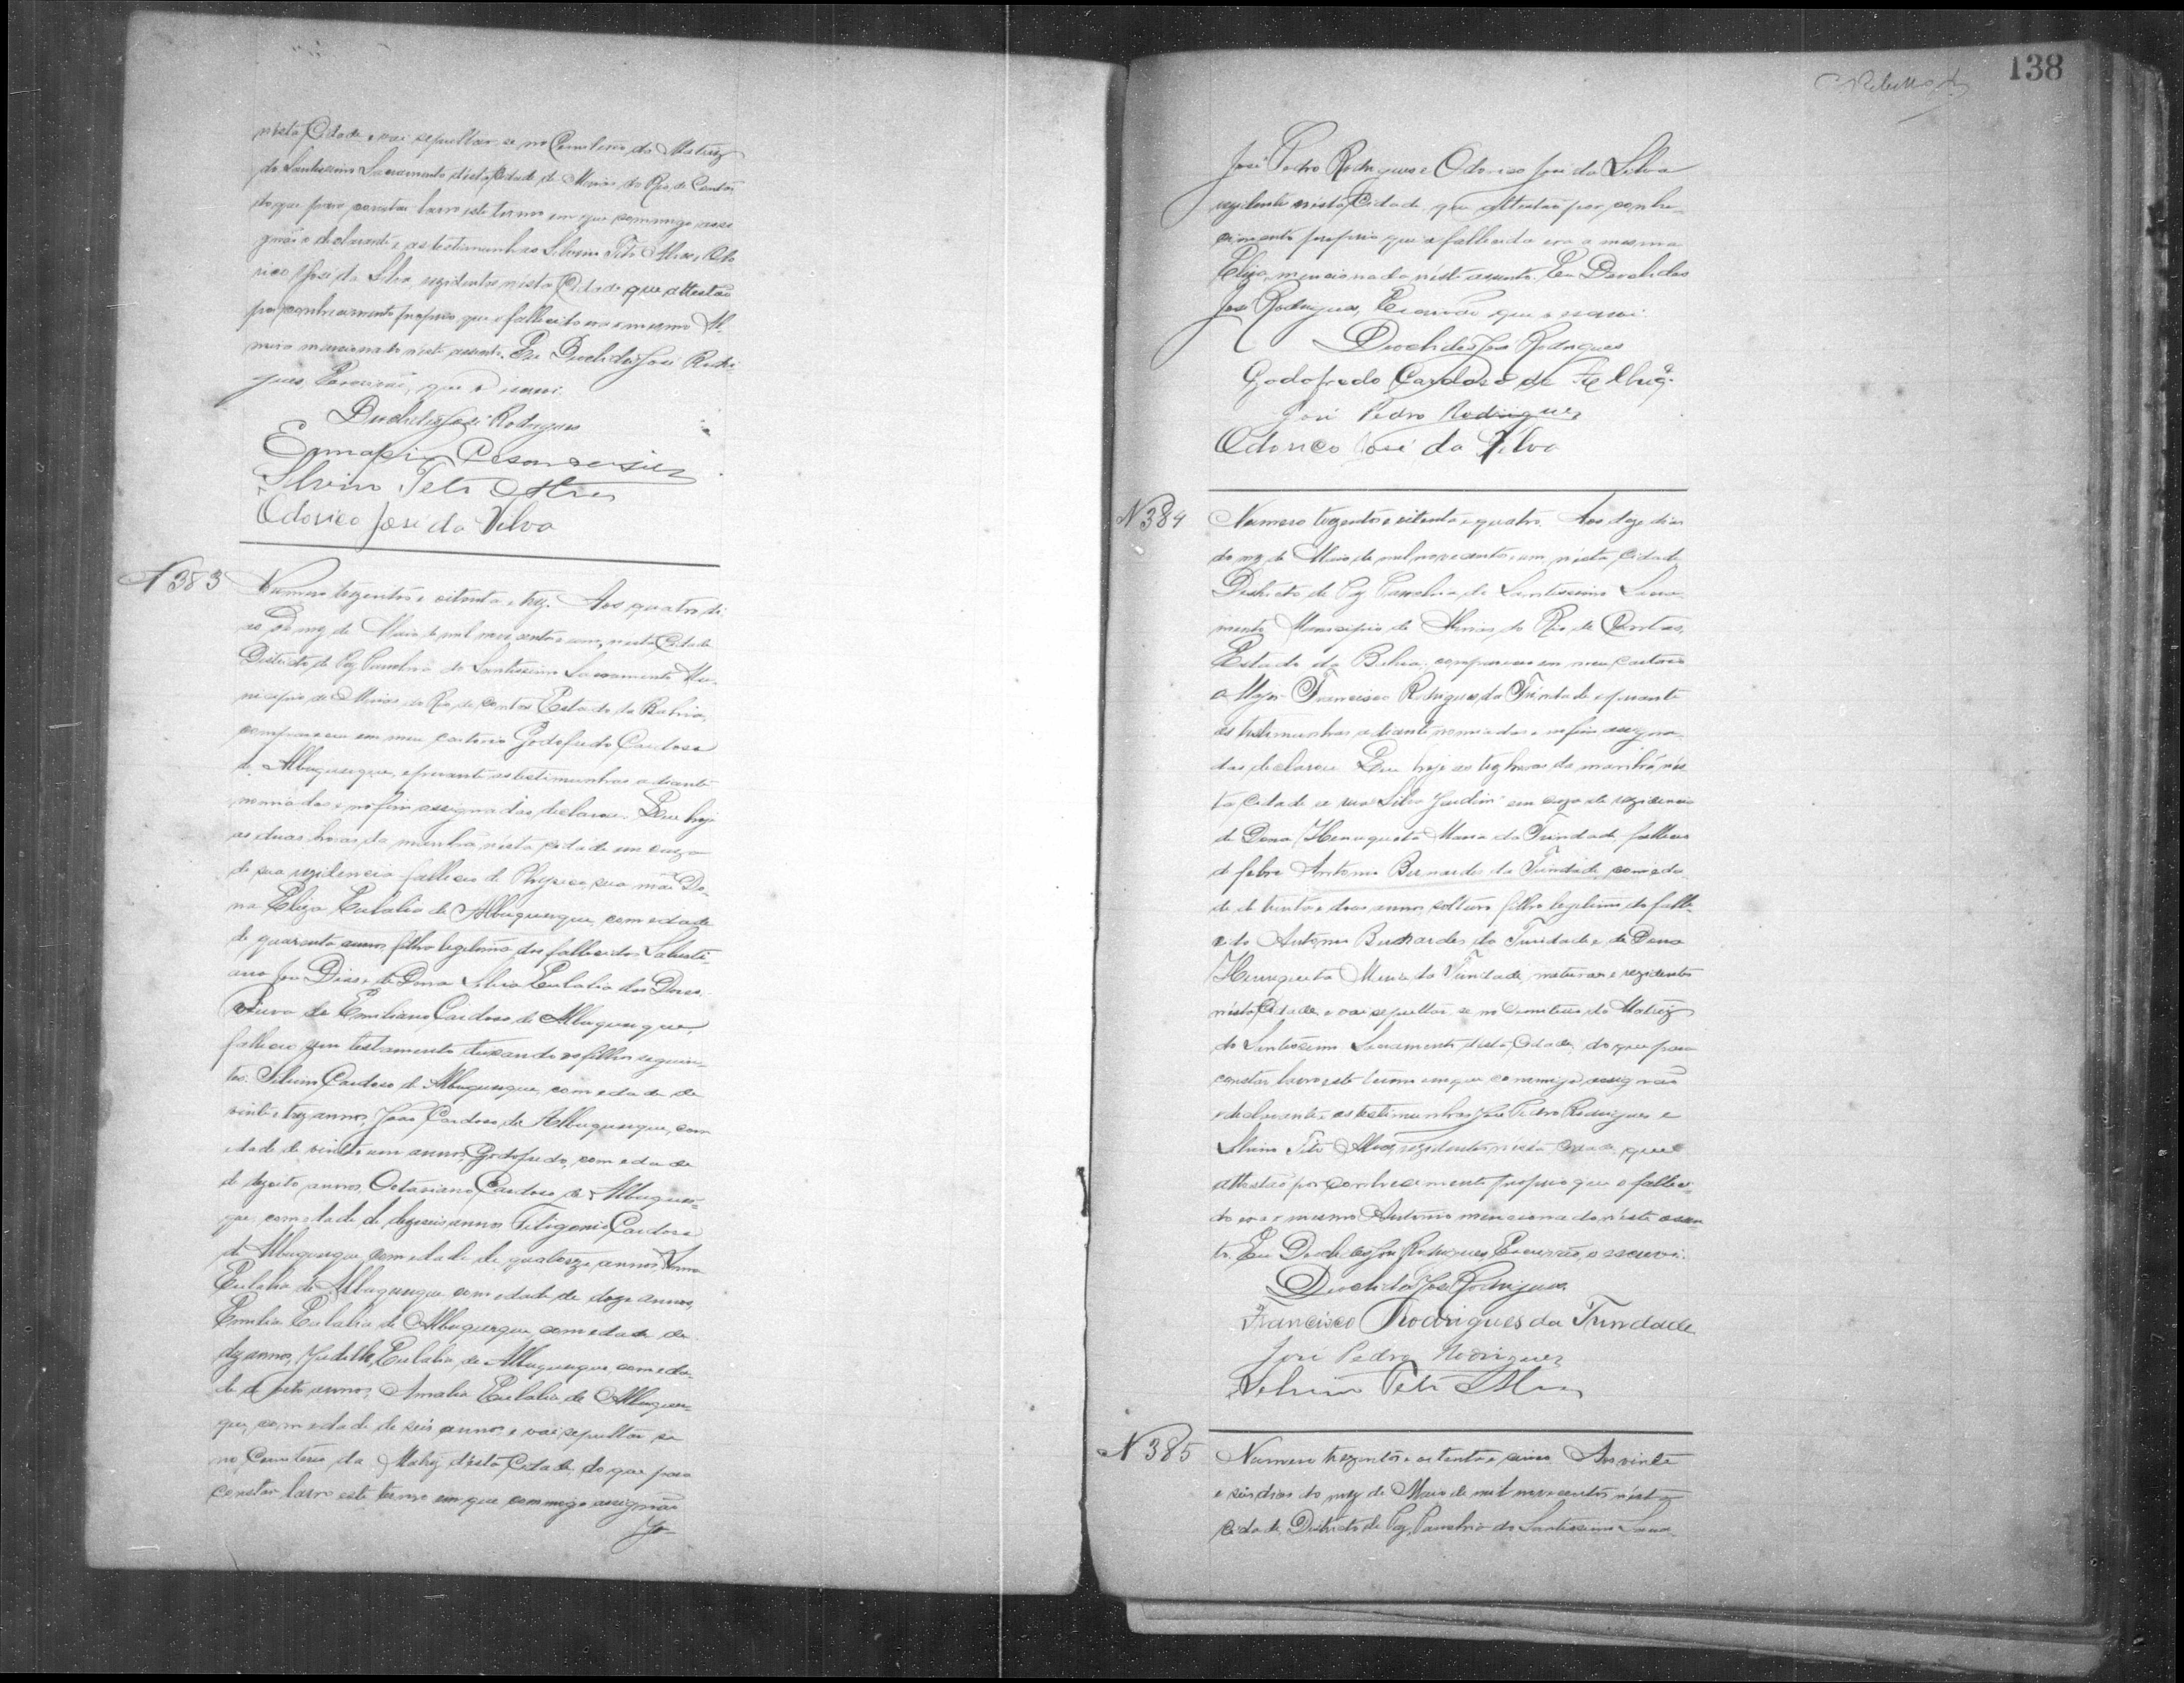 nesta Cidade e vai sepultar-se no Cemiterio da Matriz
do Santissimo Sacramento désta Cidade de Minas do Rio de Contas
do que para constar lavro este termo em que commigo assi
gnão o declarante e as testimunhas Silvino Teto Alves, Odo
rico José da Silva, rezidentes nésta Cidade que attestão
por conhecimento proprio, que o fallecido era o mesmo Al
miro mencionado néste assento. Eu Deoclides José Rodri-
gues Escrivão, que o escrevi.
Deoclides José Rodrigues
Silvino Teto Alves
Odorico José da Silva
N 383
Numero trezentos e oitenta e trez. Aos quatro di
as do mez de Maio de mil novecentos e um, nesta Cidade
Districto de Paz Parochia do Santissimo Sacramento Mu-
nicipio de Minas do Rio de Contas Estado da Bahia,
compareceu em meu cartorio Godofredo Cardoso
de Albuquerque, e perante as testimunhas adiante
nomiadas e no fim assignadas, declarou: Que hoje
as duas horas da manhã nésta cidade em caza
de sua rezidencia falleceu de Physica, sua mãe Do-
na Eliza Eulalia de Albuquerque, com edade
de quarenta annos, filha legitima dos fallecidos Salusti-
ano José Dias e de Dona Silvia Eulalia das Dores,
Viuva de Emiliano Cardoso de Albuquerque,
falleceu sem testamento deixando os filhos seguin-
tes: Silvino Cardoso de Albuquerque, com edade de
vinte e trez annos, João Cardoso de Albuquerque, com
edade de vinte e um annos, Godofredo, com edade
de dezoito annos, Octaviano Cardoso de Albuquer-
que, com edade de dezeseis annos Cardoso
de Albuquerque com edade de quatorze annos, Anna
Eulalia de Albuquerque com edade de doze annos,
Emilia Eulalia de Albuquerque, com edade de
dez annos, Judith Eulalia de Albuquerque, com eda
de de oito annos, Amalia Eulalia de Albuquer-
que, com edade de seis annos, e vai sepultar se
no Cemiterio da Matriz désta Cidade, do que para
constar lavro este termo em que commigo assignão
Jo
138
José Pedro Rodrigues e Odorico José da Silva
rezidentes nésta Cidade, que attestão por conhe-
cimento proprio que a fallecida era a mesma
Eliza, mencionada néste assento. Eu Deoclides
José Rodrigues, Escrivão que o escrevi.
Deoclides José Rodrigues
Godofredo Cardoso de Albuqe.
José Pedro Rodrigues
Odorico José da Silva
N 384
Numero trezentos e oitenta e quatro. Aos doze dias
do mez de Maio de mil novecentos e um, nésta Cidade
Districto de Paz Parochia do Santissimo Sacra-
mento Municipio de Minas do Rio de Contas,
Estado da Bahia, compareceu em meu cartorio
o Major Francisco Rodrigues da Trindade e perante
as testimunhas adiante nomiadas e no fim assigna-
das declarou: Que hoje as trez horas da manhã nés
ta Cidade a rua Silva Jardim em caza de rezidencia
de Dona Henriqueta Maria da Trindade falleceu
de febre Antonio Bernardes da Trindade, com eda-
de de trinta e dous annos, solteiro filho legitimo do falle-
cido Antonio Bernardes da Trindade e de Dona
Henriqueta Maria da Trindade, naturaes e rezidentes
nésta Cidade, e vai sepultar-se no Cemiterio da Matriz
do Santissimo Sacramento désta Cidade, do que para
constar lavro este termo em que commigo assignão
o declarante e as testimunhas José Pedro Rodrigues e
Silvino Teto Alves, rezidentes nésta Cidade, que
attestão por conhecimento proprio que o falleci-
do era o mesmo Antonio mencionado néste assen
to. Eu Deoclides José Rodrigues Escrivão, o escrevi.
Deoclides José Rodrigues.
Francisco Rodrigues da Trindade
José Pedro Rodrigues
Silvino Teto Alves
N 385
Numero trezentos e oitenta e cinco. Aos vinte
e seis dias do mez de Maio de mil novecentos nésta
Cidade, Districto de Paz, Parochia do Santissimo Sacra-